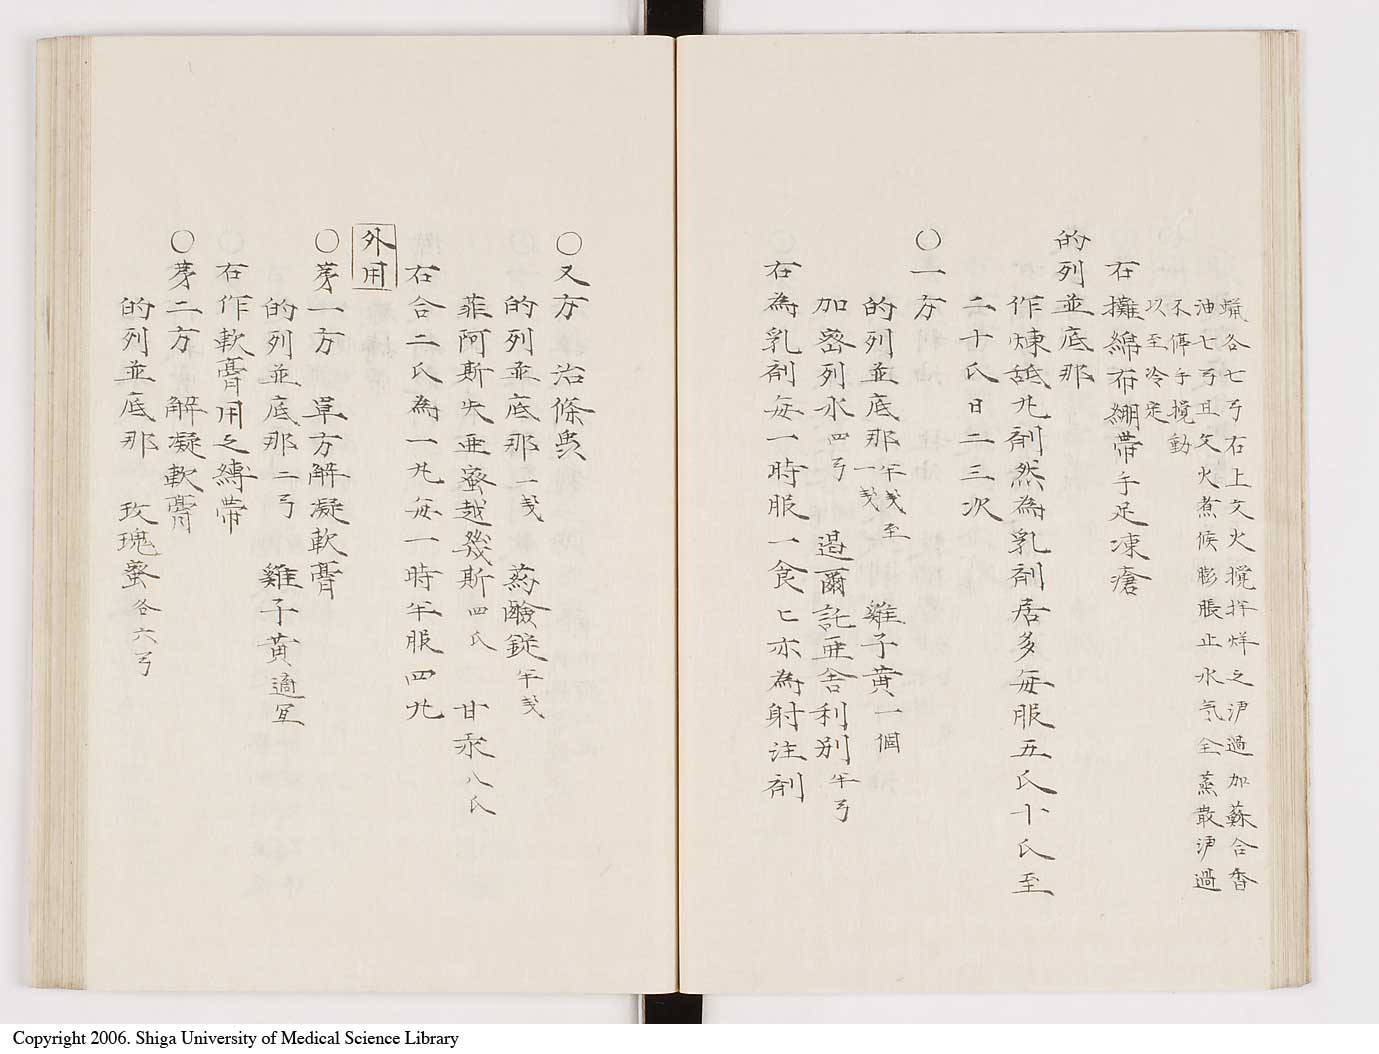 蝋各七弓右上文火撹拌烊之浐過加蘇合香
油七弓且文火煮候膨脹止水気全蒸散浐過
不停手撹動
以至冷定
右攤綿布綳帯手足凍瘡
的列並底那
作煉舐丸剤然為乳剤居多毎服五氏十氏至
二十氏日二三次
○一方
的列並底那 半戔至一戔 雞子黄一個
加密列水四弓 過爾託亜舎利別半弓
右為乳剤毎一時服一食匕亦為射注剤
○又方 治條虫
的列並底那一戔 葯鹸錠半戔
菲阿斯失亜蜜越幾斯四氏 甘汞八氏
右合二氏為一丸毎一時半服四丸
外用
○苐一方 単方解凝軟膏
的列並底那二弓 雞子黄適宜
右作軟膏用之縛帯
○苐二方 解凝軟膏
的列並底那 玫瑰蜜各六弓
Copyright 2006. Shiga University of Medical Science Library